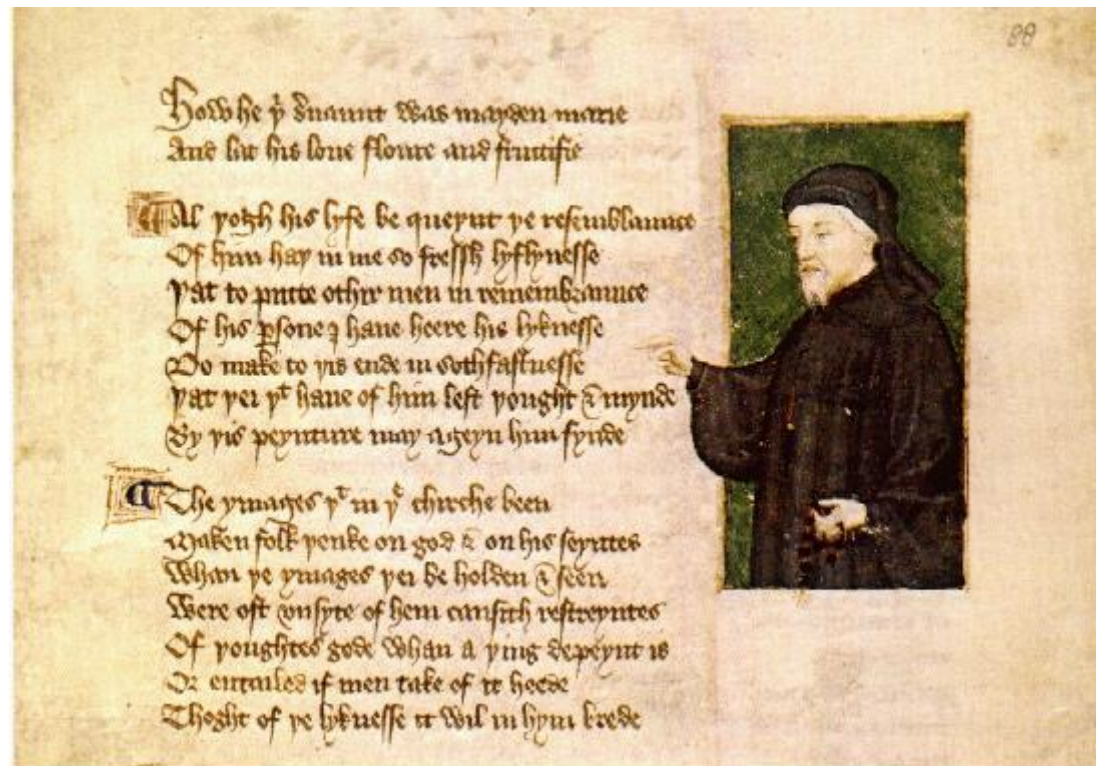 88
How he þͭ seruaunt was mayden marie
And lat his loue floure and fructifie
Al þogh his lyfe be queynt þe resemblaunce
Of him haþ in me so fressh lyflynesse
Þat to putte othir men in remembraunce
Of his persone I haue heere his lyknesse
Do make to þis ende in sothfastnesse
Þat þei þͭ haue of him left þought & mynde
By þis peynture may ageyn him fynde
The ymages þͭ in þͤ chirche been
Maken folk þenke on god & on his seyntes
Whan þe ymages þei be holden & seen
Were oft vnsyte of hem causith restreyntes
Of þoughtes gode whan a þing depeynt is
Or entailed if men take of it heede
Thoght of þe lyknesse it wil in hym brede